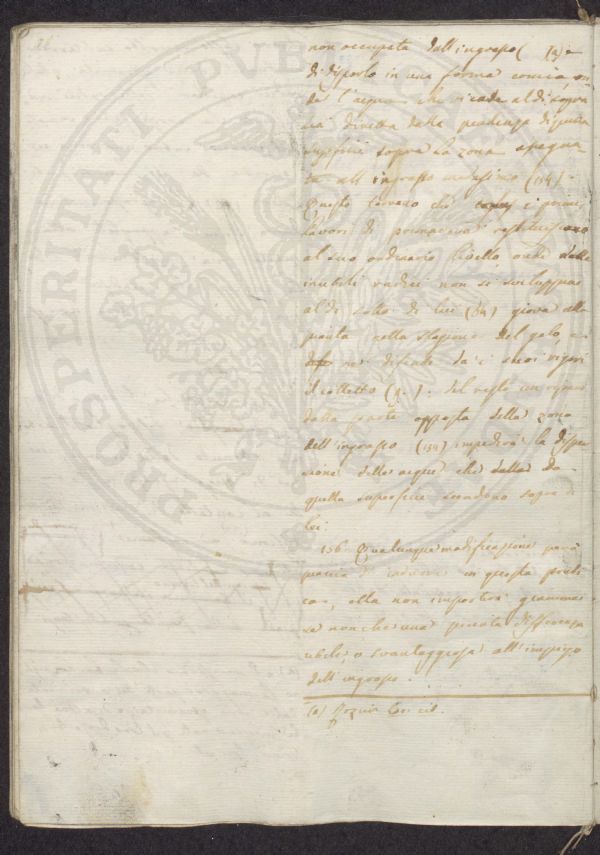 non occupata dall'ingrasso (a) e
di disporlo in una forma conica, on
de l'acqua che ricade al di sopra
sia diretta dalla pendenza di questa
superficie sopra la zona assegna
ta all'ingrasso medesimo (134).
Questo terreno che i primi
lavori di primavera restituiscono
al suo ordinario livello onde dalle
inutili radici non si sviluppino
al di sotto di lui (34) giova alla
pianta nella stagione del gelo, e
ne difende da i suoi rigori
il colletto (9.). Del resto un riparo
dalla parte opposta della zona
dell'ingrasso (134) impedirà la disper
sione delle acque che da
quella superficie scendono sopra di
lei.
136. Qualunque modificazione però
piaccia d'indurre in questa prati
ca, ella non importerà giammai
se non che una piccola differenza
utile, o svantaggiosa all'impiego
dell'ingrasso.
(a) Rozier loc. cit.
PROSPERITATI PUBLICAE